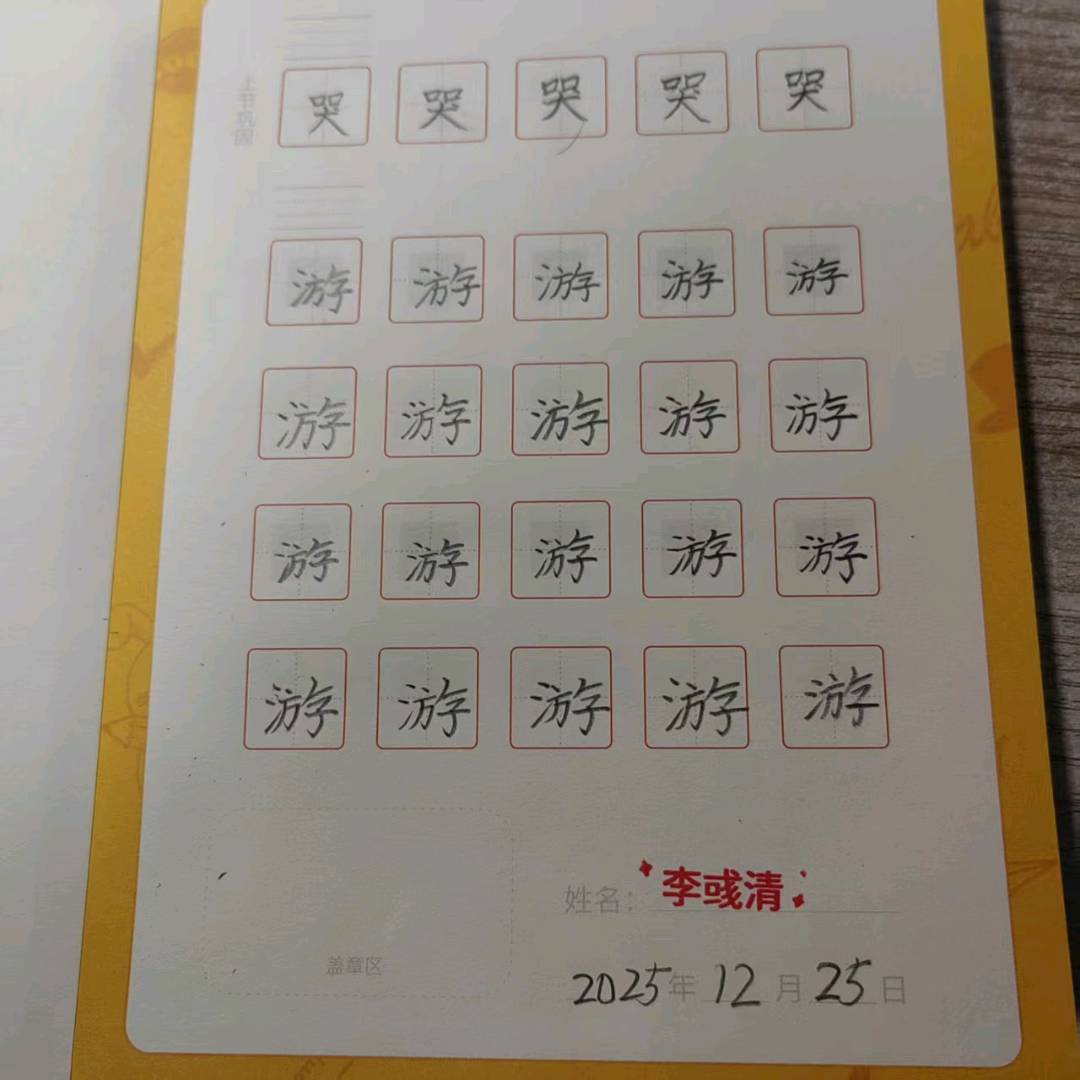 上节巩固
哭 哭 哭 哭 哭
游 游 游 游 游
游 游 游 游 游
游 游 游 游 游
游 游 游 游 游
姓名： 李彧清
盖章区
2025年 12月 25日